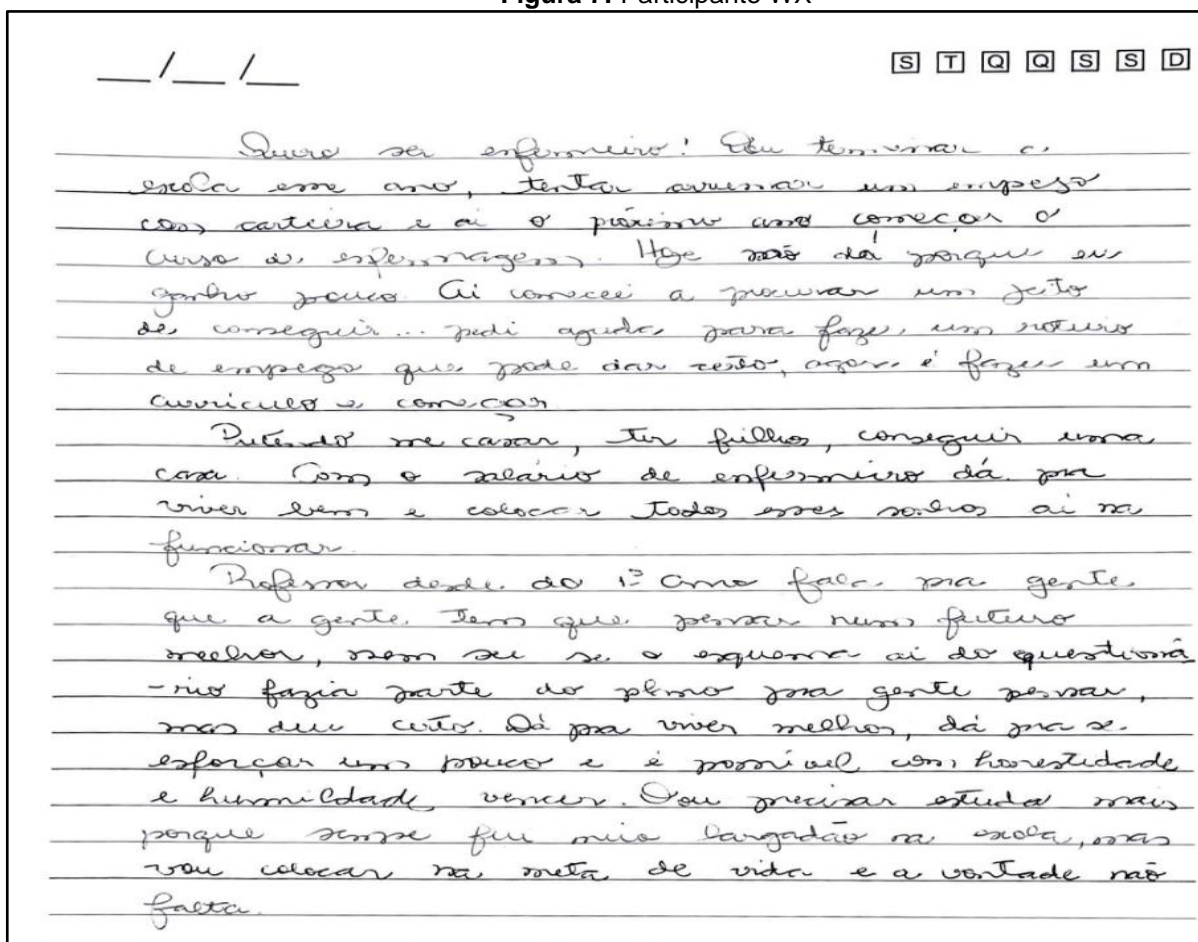 Figura 7: Participante WX
__/__/__ S T Q Q S S D
Quero ser enfermeiro! Vou terminar a
escola esse ano, tentar arrumar um empego
com carteira e ai o próximo ano começar o
curso de enfermagem. Hoje não dá porque eu
ganho pouco. Ai comecei a procurar um jeito
de conseguir... pedi ajuda para fazer um roteiro
de empego que pode dar certo, agora é fazer um
currículo e começar
Pretendo me casar, ter filhos, conseguir uma
casa. Com o salário de enfermeiro dá pra
viver bem e colocar todos esses sonhos ai na
funcionar.
Professor desde do 1º ano fala pra gente
que a gente tem que pensar num futuro
melhor, nem sei se o esquema ai do questioná
-rio fazia parte do plano pra gente pensar,
mas deu certo. Dá pra viver melhor, dá pra se
esforçar um pouco e é possível com honestidade
e humildade vencer. Vou precisar estudar mais
porque sempe fui meio largadão na escola, mas
vou colocar na meta de vida e a vontade não
falta.